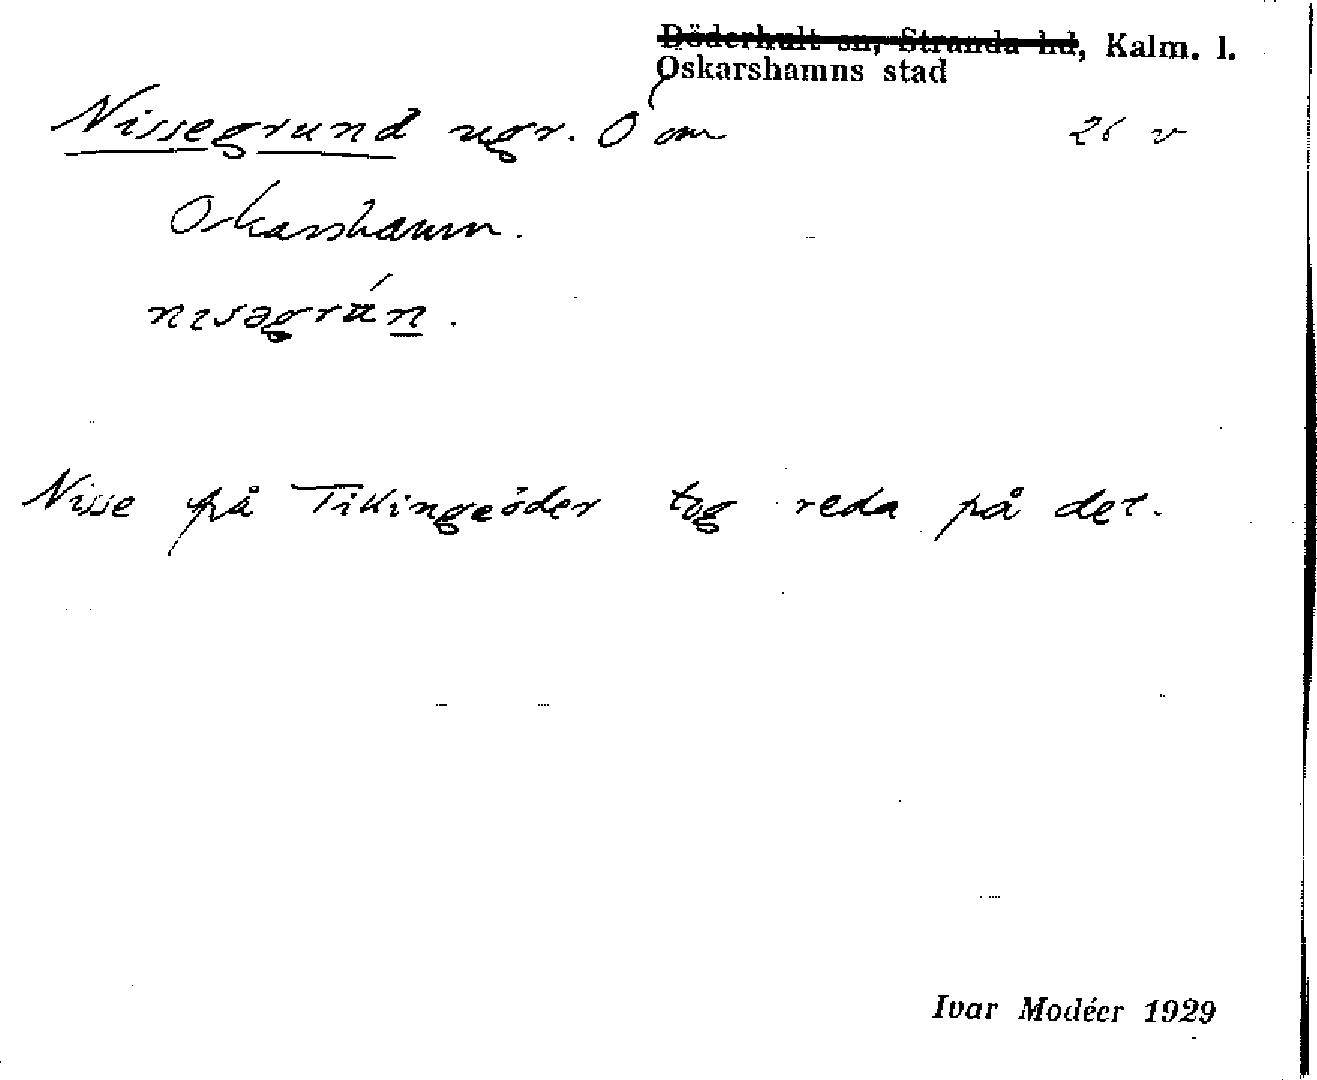 Döderhult sn, Stranda hd, Kalm. l.
Oskarshamns stad
Nissegrund ugr. O om 26 v
Oskarshamn.
nɪsəgrún.
Nisse på Tikingeöder tog reda på det.
Ivar Modéer 1929